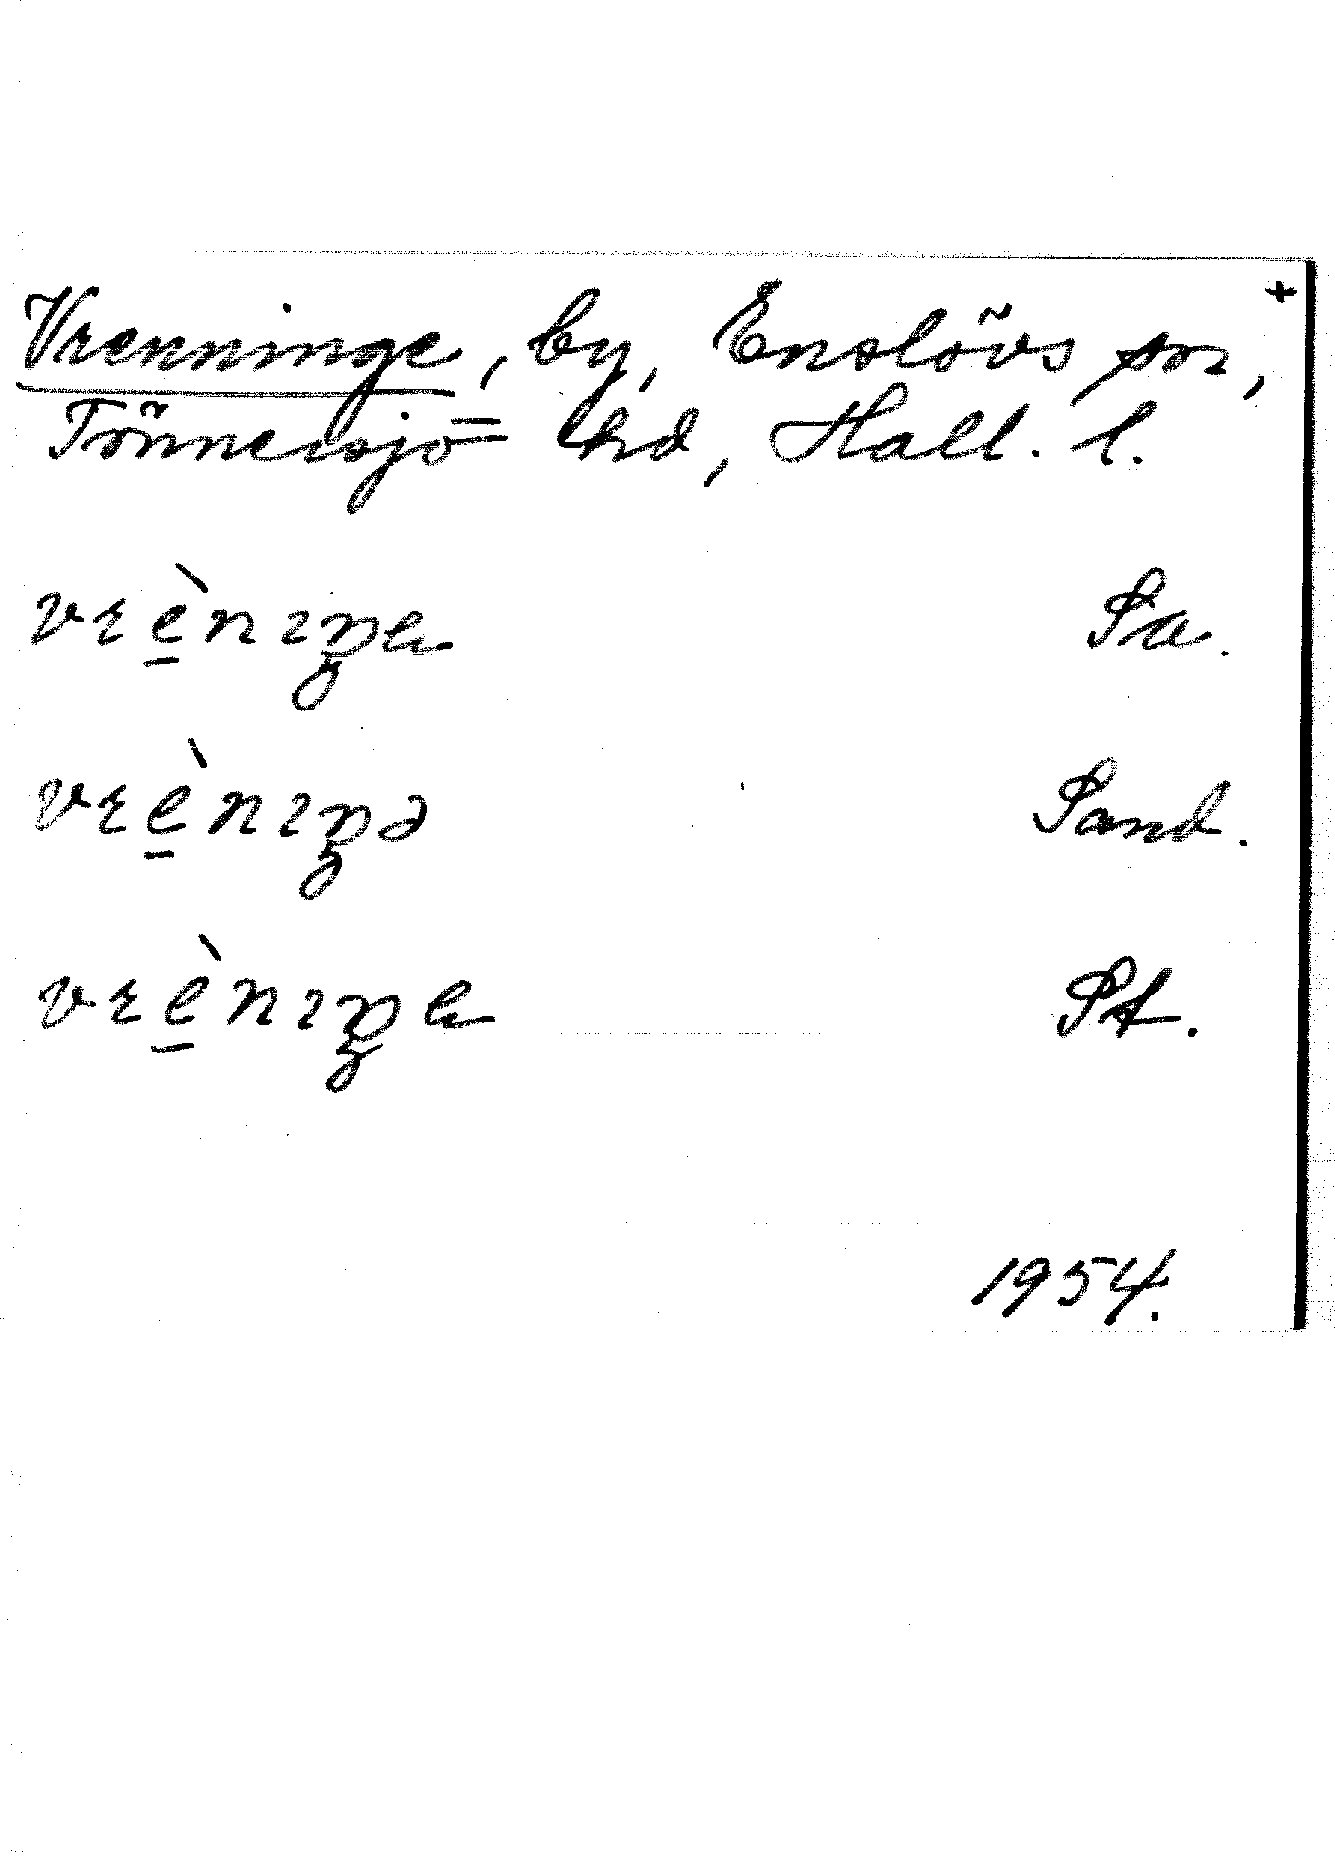 +
Vrenninge, by, Enslövs sn,
Tönnersjö hd, Hall. l.
vrèniŋe Pa.
vrèniŋə Pand.
vrèniŋe Pt.
1954.